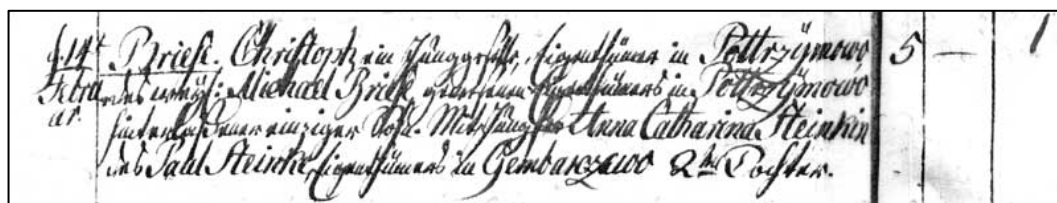 d. 14t Briese. Christoph ein Junggesell, Eigenthümer in Pottrzÿmowo 5 — 1
Febru des weyl: Michael Briese gewesenen Eigenthümers in Pottrzÿmowo
ar. hinterlaßener einziger Sohn. Mit Jungfer Anna Catharina Steinkin
des Paul Steinke, Eigenthümers in Gembarzewo 2ten Tochter.